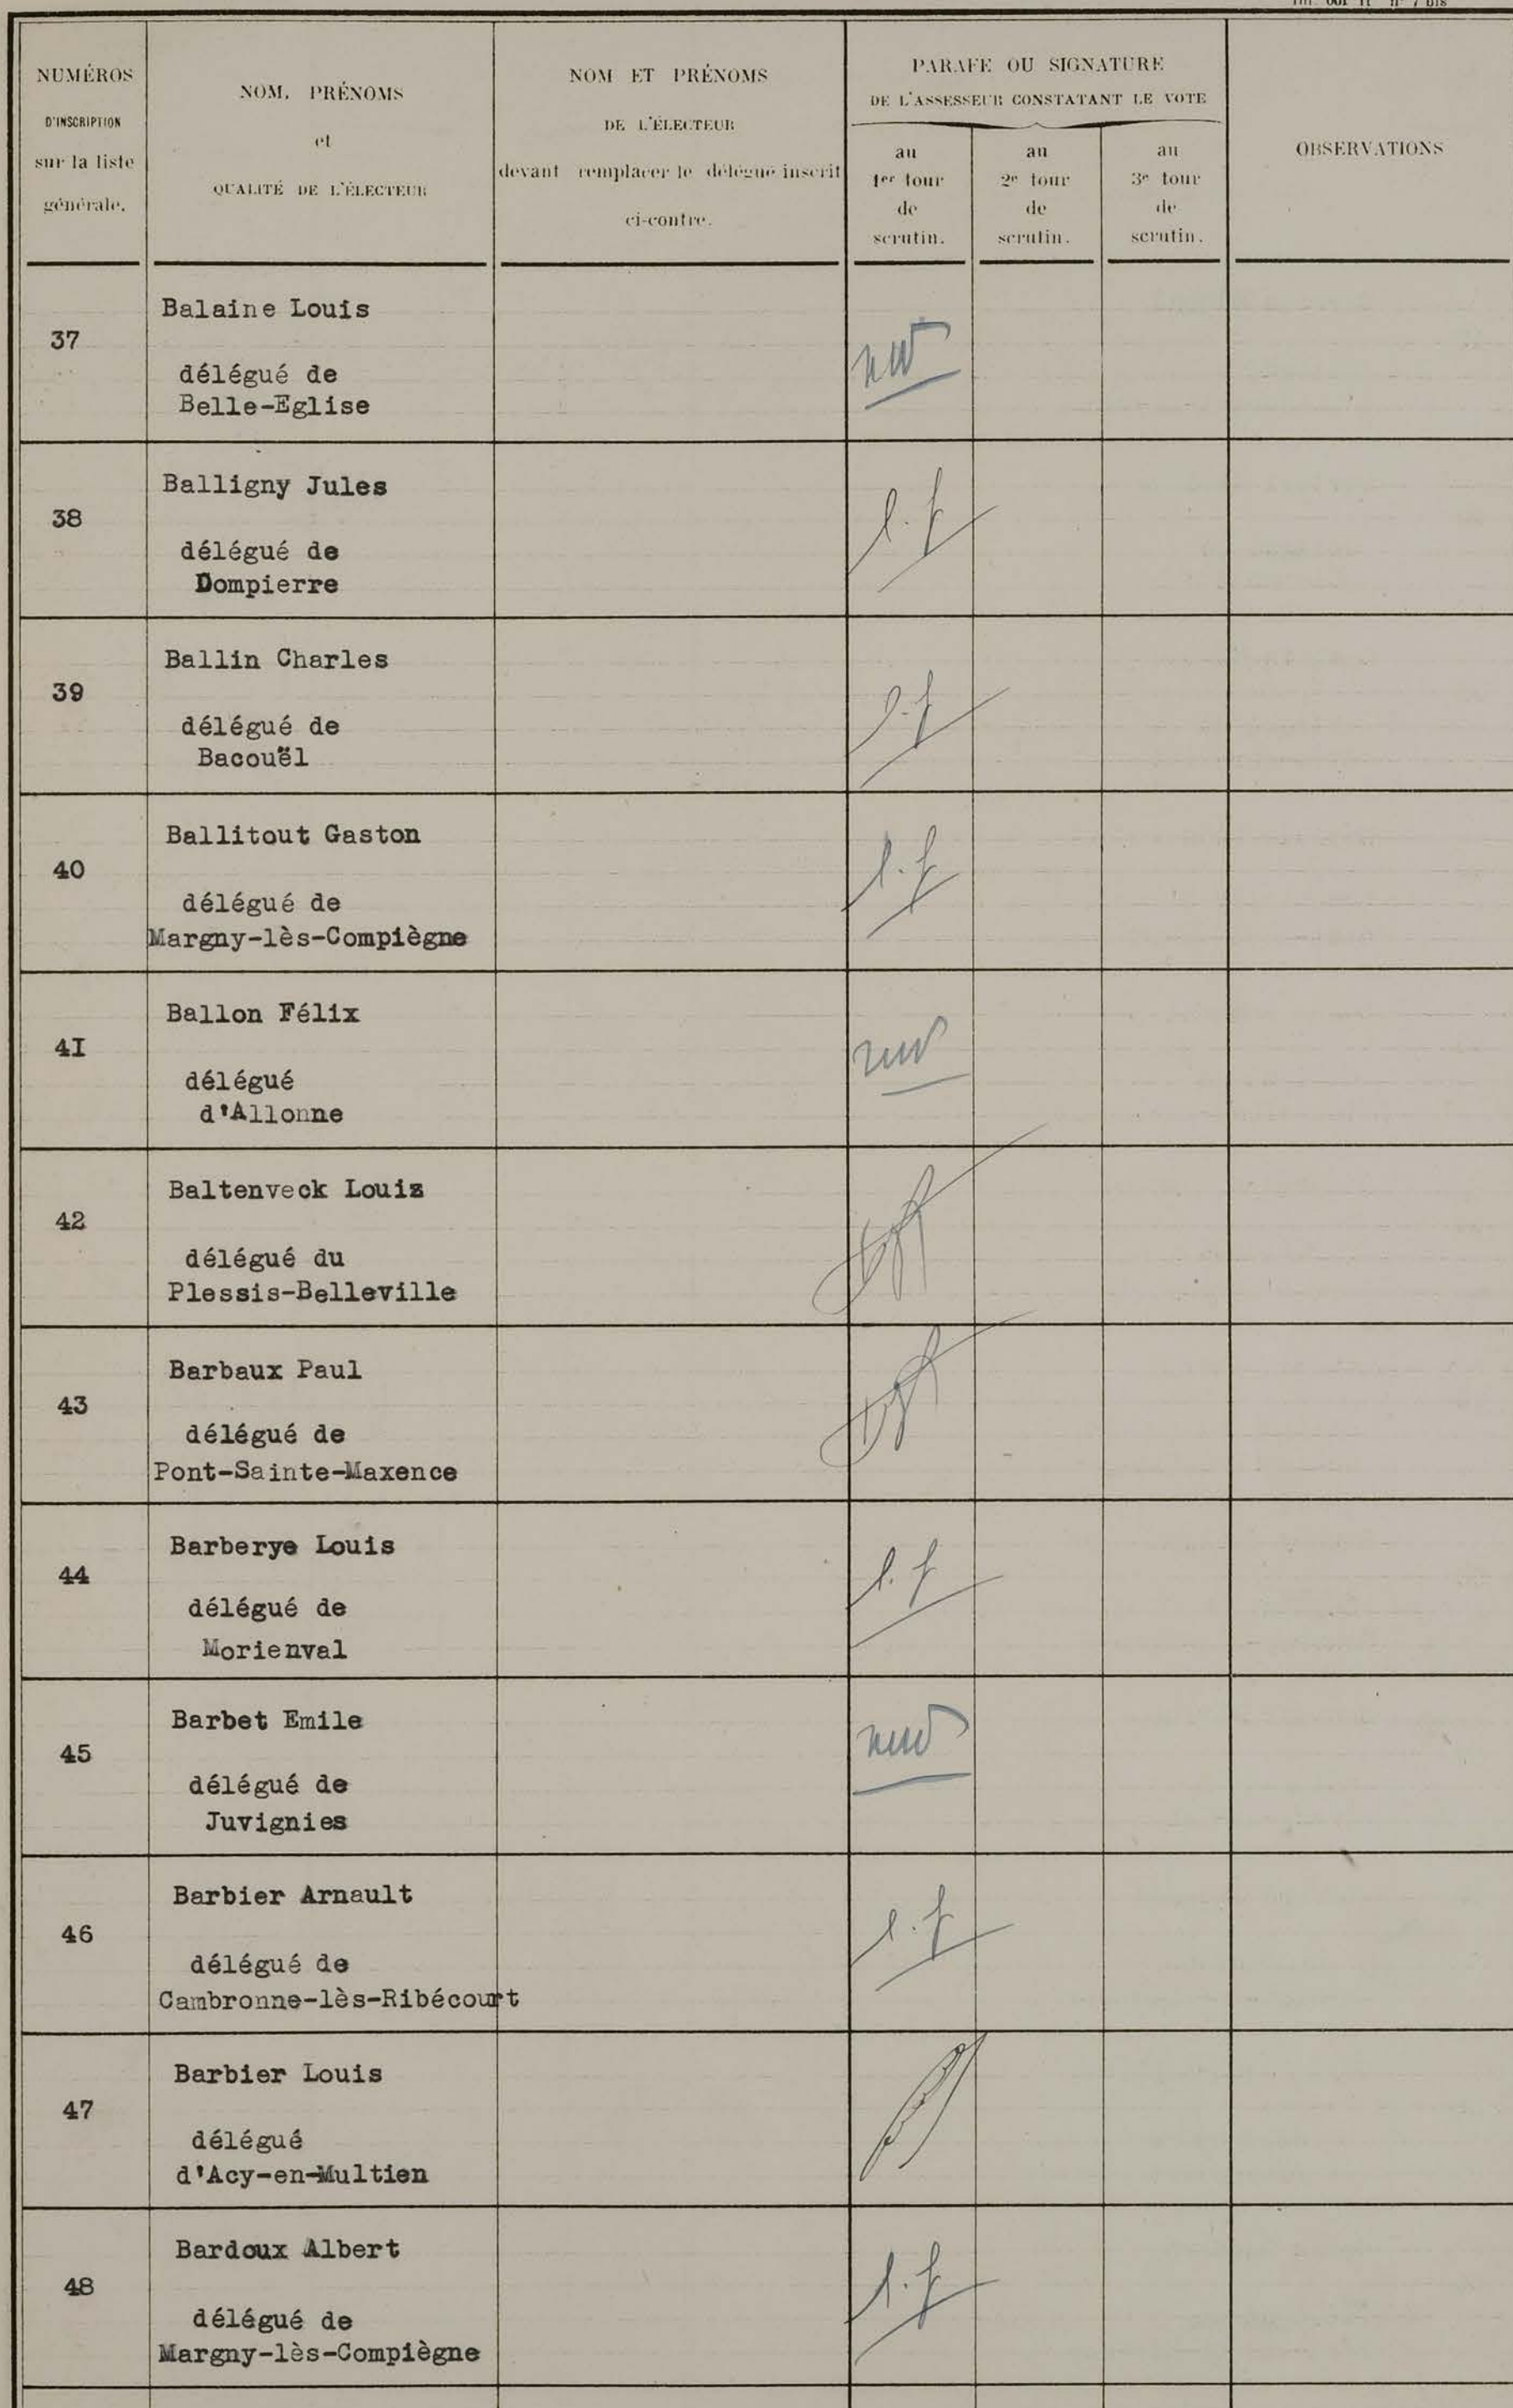 NUMÉROS
D'INSCRIPTION
sur la liste
générale.
NOM, PRÉNOMS
et
QUALITÉ DE L'ÉLECTEUR
NOM ET PRÉNOMS
DE L'ÉLECTEUR
devant remplacer le délégué inscrit
ci-contre.
PARAFE OU SIGNATURE
DE L'ASSESSEUR CONSTATANT LE VOTE
au
1er tour
de
scrutin.
au
2e tour
de
scrutin.
au
3e tour
de
scrutin.
OBSERVATIONS
37
Balaine Louis
délégué de
Belle-Eglise
38
Balligny Jules
délégué de
Dompierre
l.f
39
Ballin Charles
délégué de
Bacouël
l.f
40
Ballitout Gaston
délégué de
Margny-lès-Compiègne
l.f
4I
Ballon Félix
délégué
d'Allonne
42
Baltenveck Louis
délégué du
Plessis-Belleville
43
Barbaux Paul
délégué de
Pont-Sainte-Maxence
44
Barberye Louis
délégué de
Morienval
l.f
45
Barbet Emile
délégué de
Juvignies
46
Barbier Arnault
délégué de
Cambronne-lès-Ribécourt
l.f
47
Barbier Louis
délégué
d'Acy-en-Multien
48
Bardoux Albert
délégué de
Margny-lès-Compiègne
l.f